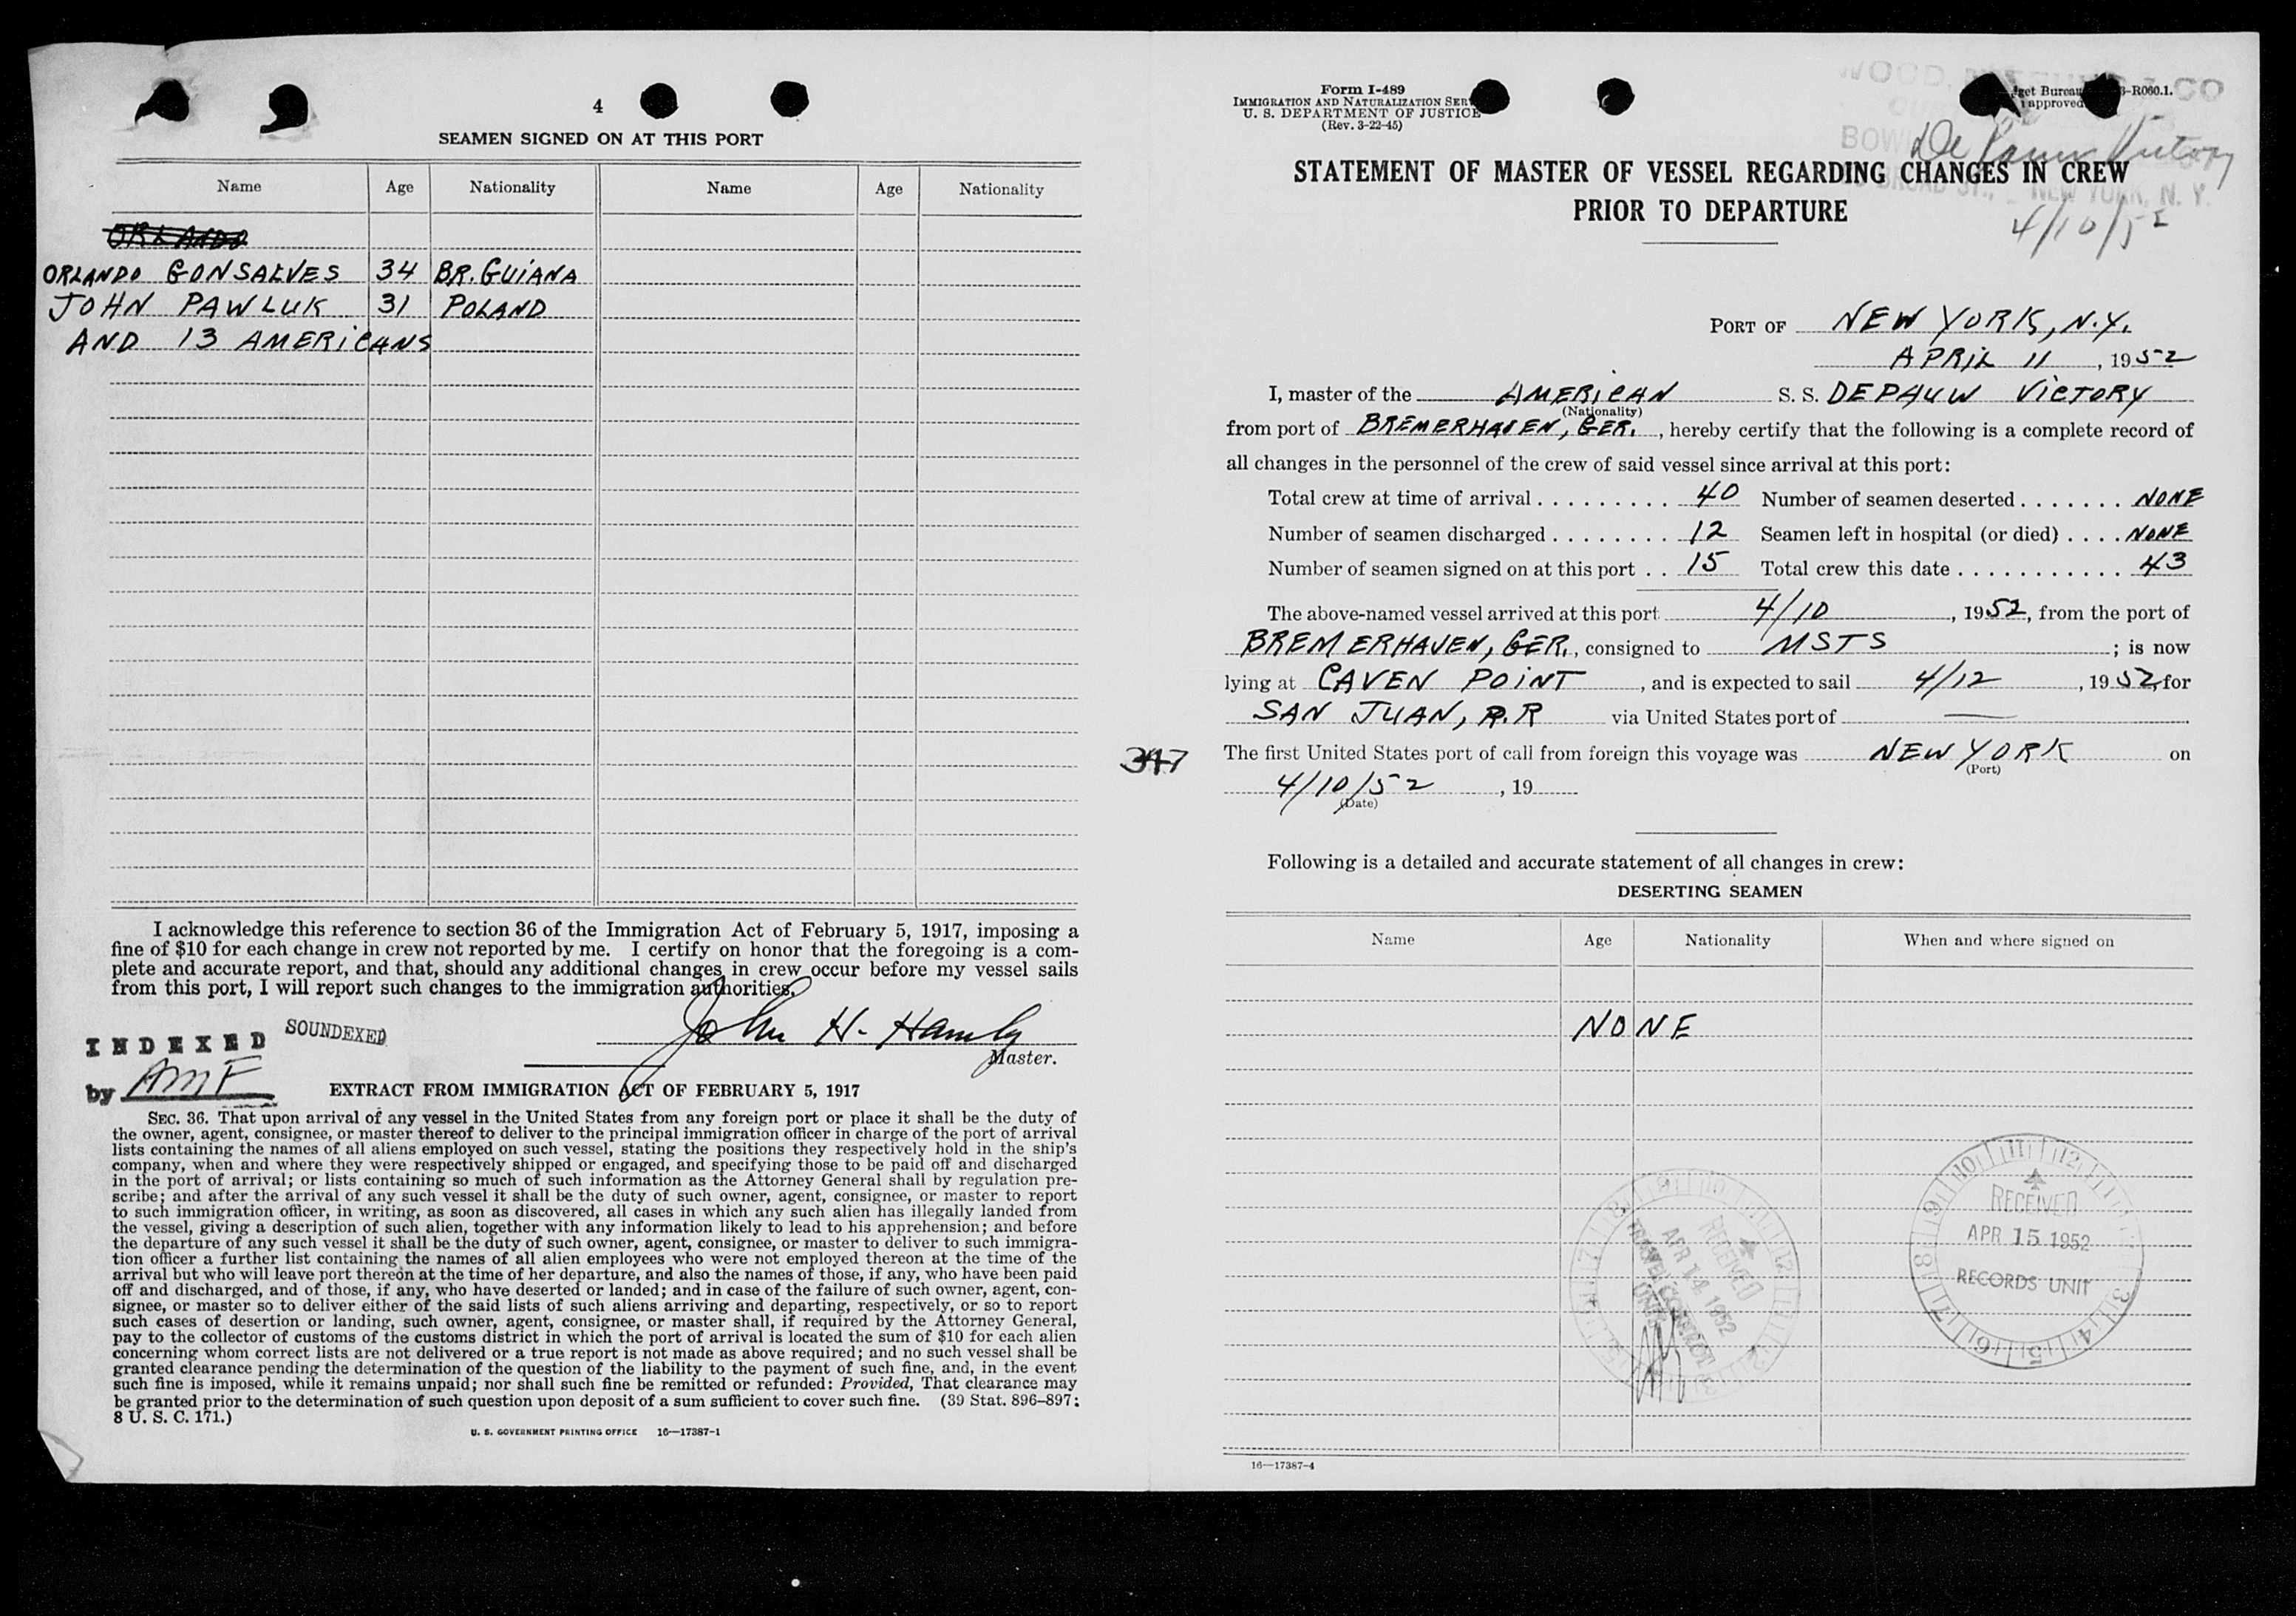 4
SEAMEN SIGNED ON AT THIS PORT
Name Age Nationality Name Age Nationality
ORLANDO
ORLANDO GONSALVES 34 BR. GUIANA
JOHN PAWLUK 31 POLAND
AND 13 AMERICANS
I acknowledge this reference to section 36 of the Immigration Act of February 5, 1917, imposing a
fine of $10 for each change in crew not reported by me. I certify on honor that the foregoing is a com-
plete and accurate report, and that, should any additional changes in crew occur before my vessel sails
from this port, I will report such changes to the immigration authorities.
John H.
Master.
INDEXED SOUNDEXED
by AMF
EXTRACT FROM IMMIGRATION ACT OF FEBRUARY 5, 1917
SEC. 36. That upon arrival of any vessel in the United States from any foreign port or place it shall be the duty of
the owner, agent, consignee, or master thereof to deliver to the principal immigration officer in charge of the port of arrival
lists containing the names of all aliens employed on such vessel, stating the positions they respectively hold in the ship's
company, when and where they were respectively shipped or engaged, and specifying those to be paid off and discharged
in the port of arrival; or lists containing so much of such information as the Attorney General shall by regulation pre-
scribe; and after the arrival of any such vessel it shall be the duty of such owner, agent, consignee, or master to report
to such immigration officer, in writing, as soon as discovered, all cases in which any such alien has illegally landed from
the vessel, giving a description of such alien, together with any information likely to lead to his apprehension; and before
the departure of any such vessel it shall be the duty of such owner, agent, consignee, or master to deliver to such immigra-
tion officer a further list containing the names of all alien employees who were not employed thereon at the time of the
arrival but who will leave port thereon at the time of her departure, and also the names of those, if any, who have been paid
off and discharged, and of those, if any, who have deserted or landed; and in case of the failure of such owner, agent, con-
signee, or master so to deliver either of the said lists of such aliens arriving and departing, respectively, or so to report
such cases of desertion or landing, such owner, agent, consignee, or master shall, if required by the Attorney General,
pay to the collector of customs of the customs district in which the port of arrival is located the sum of $10 for each alien
concerning whom correct lists are not delivered or a true report is not made as above required; and no such vessel shall be
granted clearance pending the determination of the question of the liability to the payment of such fine, and, in the event
such fine is imposed, while it remains unpaid; nor shall such fine be remitted or refunded: Provided, That clearance may
be granted prior to the determination of such question upon deposit of a sum sufficient to cover such fine. (39 Stat. 896–897;
8 U. S. C. 171.)
U. S. GOVERNMENT PRINTING OFFICE 16—17387-1
Form I-489
IMMIGRATION AND NATURALIZATION SER
U. S. DEPARTMENT OF JUSTICE
(Rev. 3-22-45)
WOOD, & CO
Bureau -R060.1.
approved
BOW
De Pauw Victory
BROAD ST., NEW YORK, N. Y.
4/10/52
STATEMENT OF MASTER OF VESSEL REGARDING CHANGES IN CREW
PRIOR TO DEPARTURE
PORT OF NEW YORK, N.Y.
APRIL 11, 1952
I, master of the AMERICAN S. S. DEPAUW VICTORY
(Nationality)
from port of BREMERHAVEN, GER., hereby certify that the following is a complete record of
all changes in the personnel of the crew of said vessel since arrival at this port:
Total crew at time of arrival . . . . . . . . . . 40 Number of seamen deserted . . . . . . . NONE
Number of seamen discharged . . . . . . . . 12 Seamen left in hospital (or died) . . . . NONE
Number of seamen signed on at this port . . 15 Total crew this date . . . . . . . . . . . . 43
The above-named vessel arrived at this port 4/10, 1952, from the port of
BREMERHAVEN, GER., consigned to MSTS; is now
lying at CAVEN POINT, and is expected to sail 4/12, 1952, for
SAN JUAN, P.R via United States port of —
347
The first United States port of call from foreign this voyage was NEW YORK on
(Port)
4/10/52, 19
(Date)
Following is a detailed and accurate statement of all changes in crew:
DESERTING SEAMEN
Name Age Nationality When and where signed on
NONE
RECEIVED
APR 14 1952
UNIT
RECEIVED
APR 15 1952
RECORDS UNIT
16—17387-4